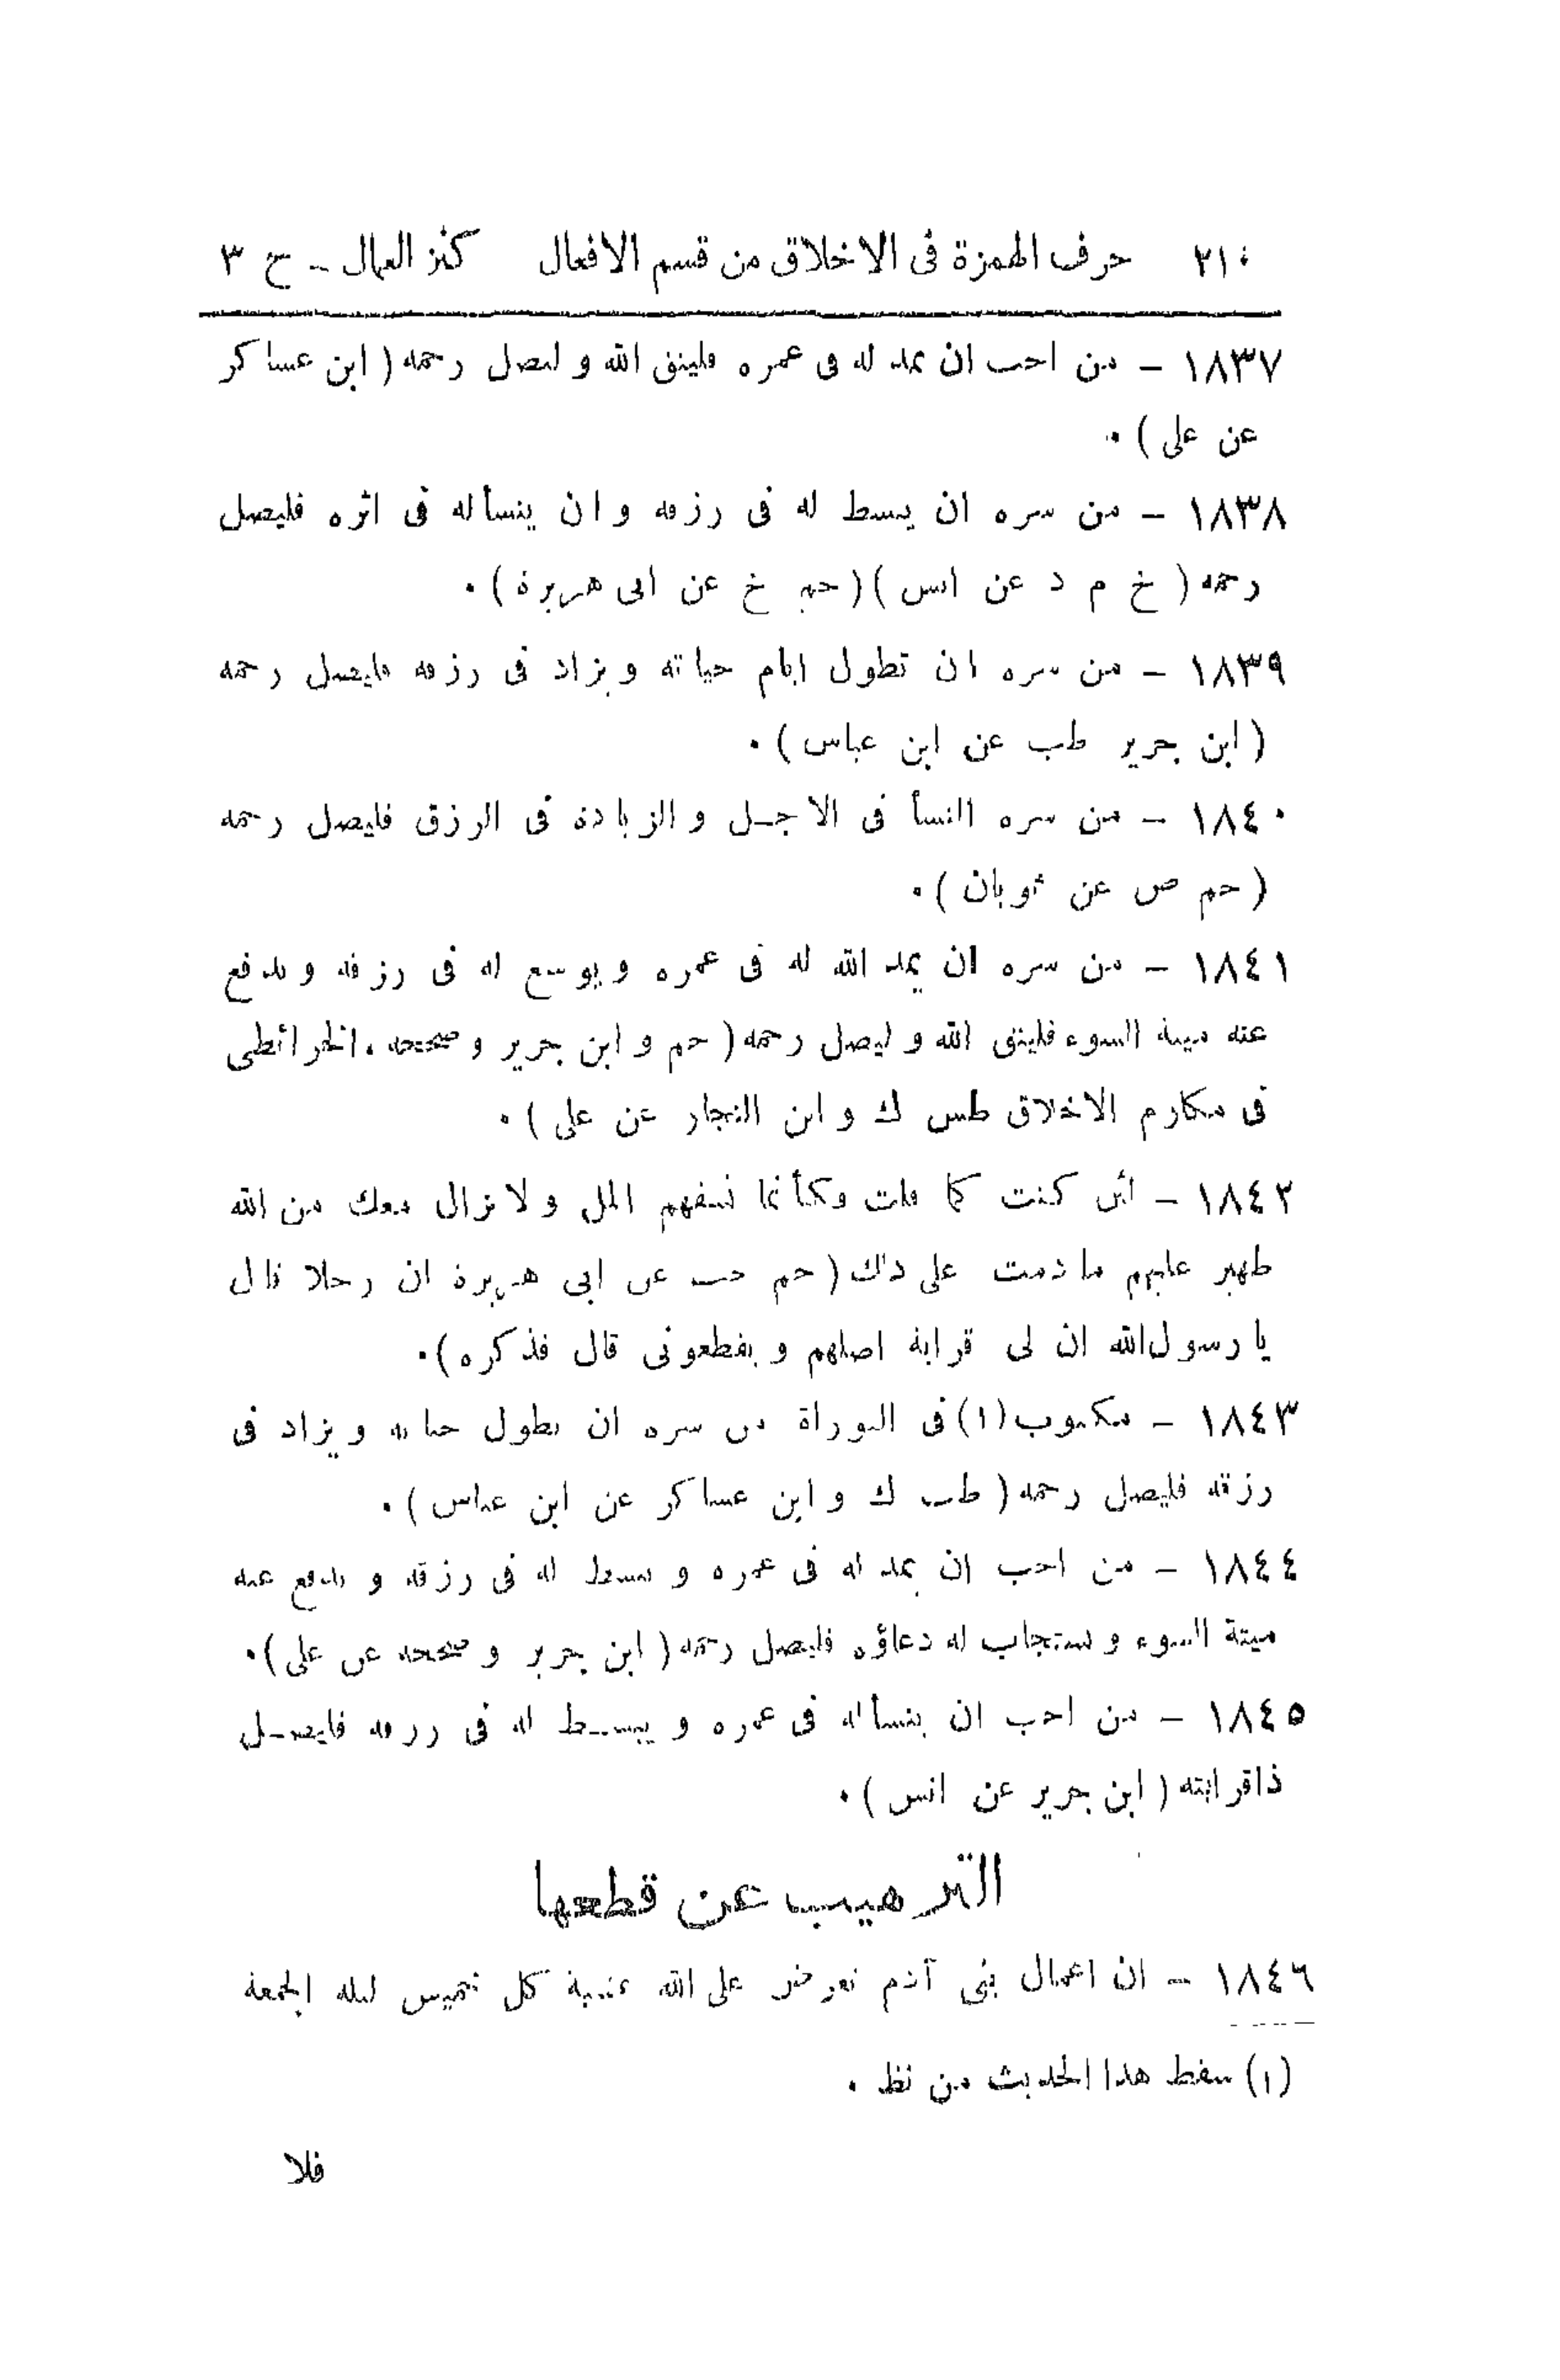 ٢١٠ حرف الهمزة فى الاخلاق من قسم الافعال كنز العمال ـ ج ٣
١٨٣٧ – من احب ان يمد له فى عمره فليتق الله و ليصل رحمه ( ابن عساكر
عن على ) .
١٨٣٨ – من سره ان يبسط له فى رزقه و ان ينسأ له فى اثره فليصل
رحمه ( خ م د عن انس ) ( حم خ عن ابى هريرة ) .
١٨٣٩ – من سره ان تطول ايام حياته و يزاد فى رزقه فليصل رحمه
( ابن جرير طب عن ابن عباس ) .
١٨٤٠ – من سره النسأ فى الاجل و الزيادة فى الرزق فليصل رحمه
( حم ص عن ثوبان ) .
١٨٤١ – من سره ان يمد الله له فى عمره و يوسع له فى رزقه و يدفع
عنه ميتة السوء فليتق الله و ليصل رحمه ( حم و ابن جرير و صححه ، الخرائطى
فى مكارم الاخلاق طس ك و ابن النجار عن على ) .
١٨٤٢ – لئن كنت كما قلت وكأنما تسفهم المل و لا تزال معك من الله
ظهير عليهم ما دمت على ذلك ( حم حب عن ابى هريرة ان رجلا قال
يا رسول الله ان لى قرابة اصلهم و يقطعونى قال فذكره ) .
١٨٤٣ – مكتوب (١) فى التوراة من سره ان تطول حياته و يزاد فى
رزقه فليصل رحمه ( طب ك و ابن عساكر عن ابن عباس ) .
١٨٤٤ – من احب ان يمد له فى عمره و يبسط له فى رزقه و يدفع عنه
ميتة السوء و يستجاب له دعاؤه فليصل رحمه ( ابن جرير و صححه عن على ) .
١٨٤٥ – من احب ان ينسأ له فى عمره و يبسط له فى رزقه فليصل
ذا قرابته ( ابن جرير عن انس ) .
الترهيب عن قطعها
١٨٤٦ – ان اعمال بنى آدم تعرض على الله عشية كل خميس ليلة الجمعة
(١) سقط هذا الحديث من نظ .
فلا